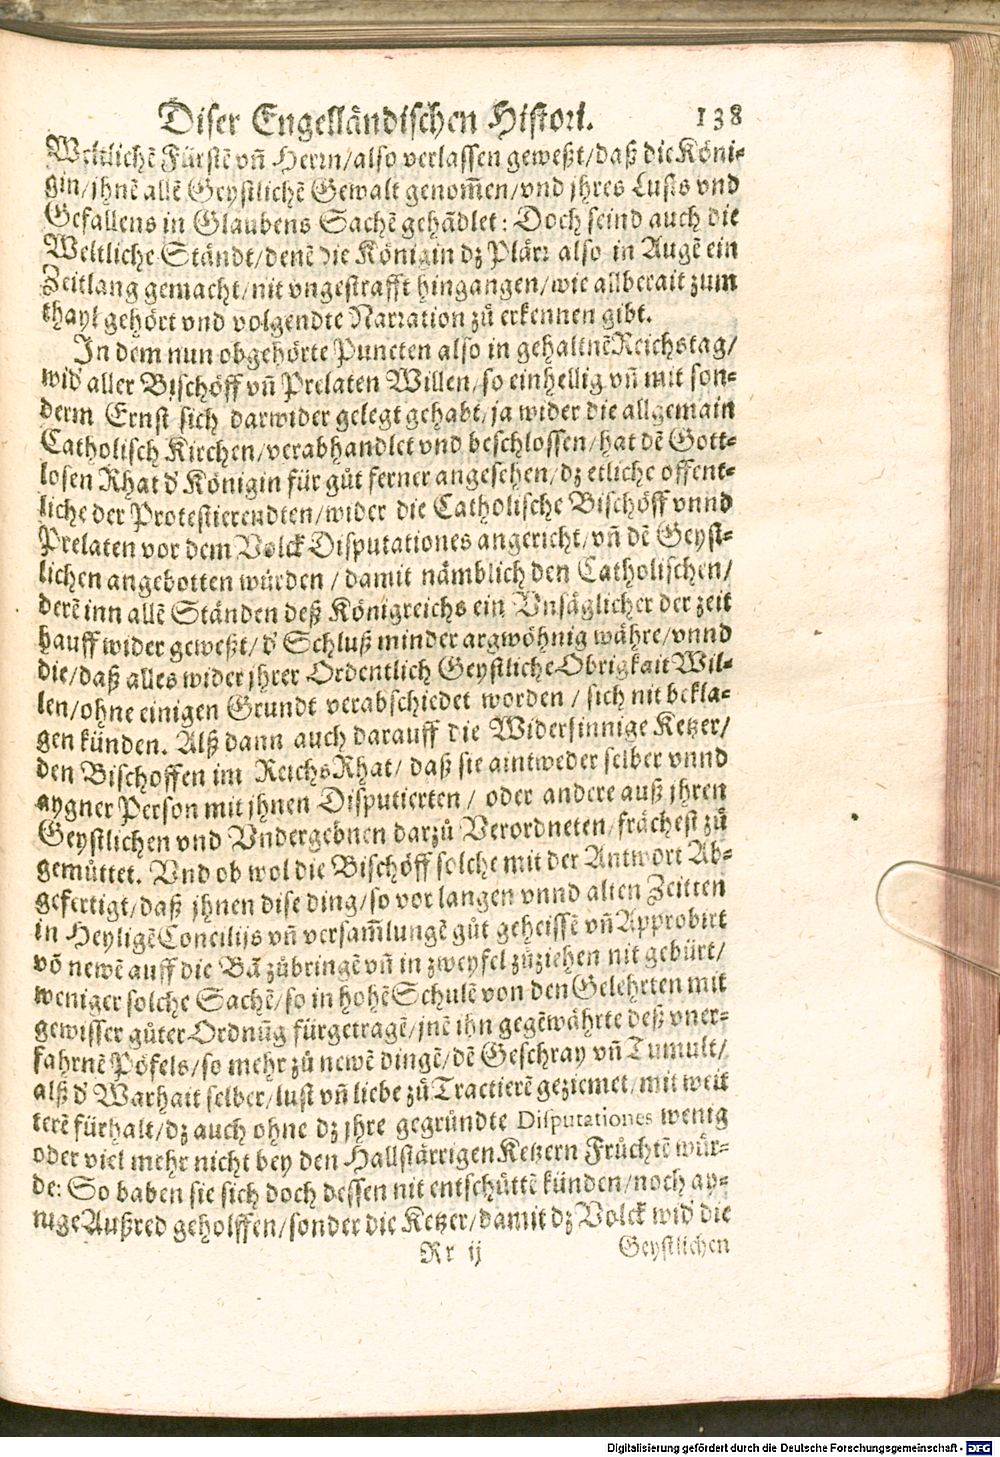 Diser Engelländischen Histori. 138
Weltlichē Fürstē vñ Herrn/also verlassen geweßt/daß die Köni-
gin/jhnē allē Geystlichē Gewalt genom̃en/vnd jhres Lusts vnd
Gefallens in Glaubens Sachē gehādlet: Doch seind auch die
Weltliche Ständt/denē die Königin dz Plärr also in Augē ein
Zeitlang gemacht/nit vngestrafft hingangen/wie allberait zum
thayl gehört vnd volgendte Narration zů erkennen gibt.
In dem nun obgehörte Puncten also in gehaltnē Reichstag/
wid' aller Bischöff vñ Prelaten Willen/so einhellig vñ mit son-
derm Ernst sich darwider gelegt gehabt/ja wider die allgemain
Catholisch Kirchen/verabhandlet vnd beschlossen/hat dē Gott-
losen Rhat d' Königin für gůt ferner angesehen/dz etliche offent-
liche der Protestierendten/wider die Catholische Bischöff vnnd
Prelaten vor dem Volck Disputationes angericht/vñ dē Geyst-
lichen angebotten würden / damit nämblich den Catholischen/
derē inn allē Ständen deß Königreichs ein Vnsäglicher der zeit
hauff wider geweßt/d' Schluß minder argwöhnig währe/vnnd
die/daß alles wider jhrer Ordentlich Geystliche Obrigkait Wil-
len/ohne einigen Grundt verabschiedet worden / sich nit bekla-
gen künden. Alß dann auch darauff die Widersinnige Ketzer/
den Bischoffen im ReichsRhat/ daß sie aintweder selber vnnd
aygner Person mit jhnen Disputierten / oder andere auß jhren
Geystlichen vnd Vndergebnen darzů Verordneten/frächest zů
gemůttet. Vnd ob wol die Bischöff solche mit der Antwort Ab-
gefertigt/daß jhnen dise ding/so vor langen vnnd alten Zeitten
in Heyligē Concilijs vñ versam̃lungē gůt geheissē vñ Approbirt
vō newē auff die Bā zůbringē vñ in zweyfel zůziehen nit gebürt/
weniger solche Sachē/so in hohē Schulē von den Gelehrten mit
gewisser gůter Ordnũg fürgetragē/jnē ihn gegēwährte deß vner-
fahrnē Pöfels/so mehr zů newē dingē/dē Geschray vñ Tumult/
alß d' Warhait selber/lust vñ liebe zů Tractierē geziemet/mit weit
terē fürhalt/dz auch ohne dz jhre gegründte Disputationes wenig
oder viel mehr nicht bey den Hallstärrigen Ketzern Früchtē wür-
de: So haben sie sich doch dessen nit entschüttē künden/noch ay-
nige Außred geholffen/sonder die Ketzer/damit dz Volck wid' die
Rr ij Geystlichen
Digitalisierung gefördert durch die Deutsche Forschungsgemeinschaft - DFG